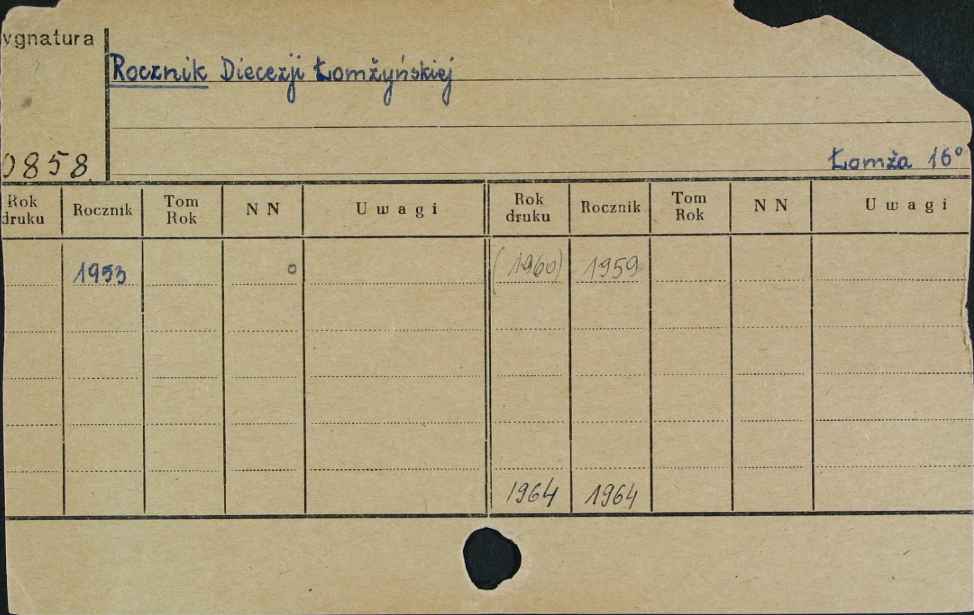 ygnatura
Rocznik Diecezji Łomżyńskiej
0858
Łomża 16°
Rok druku Rocznik Tom Rok NN Uwagi Rok druku Rocznik Tom Rok NN Uwagi
1953 o (1960) 1959
1964 1964